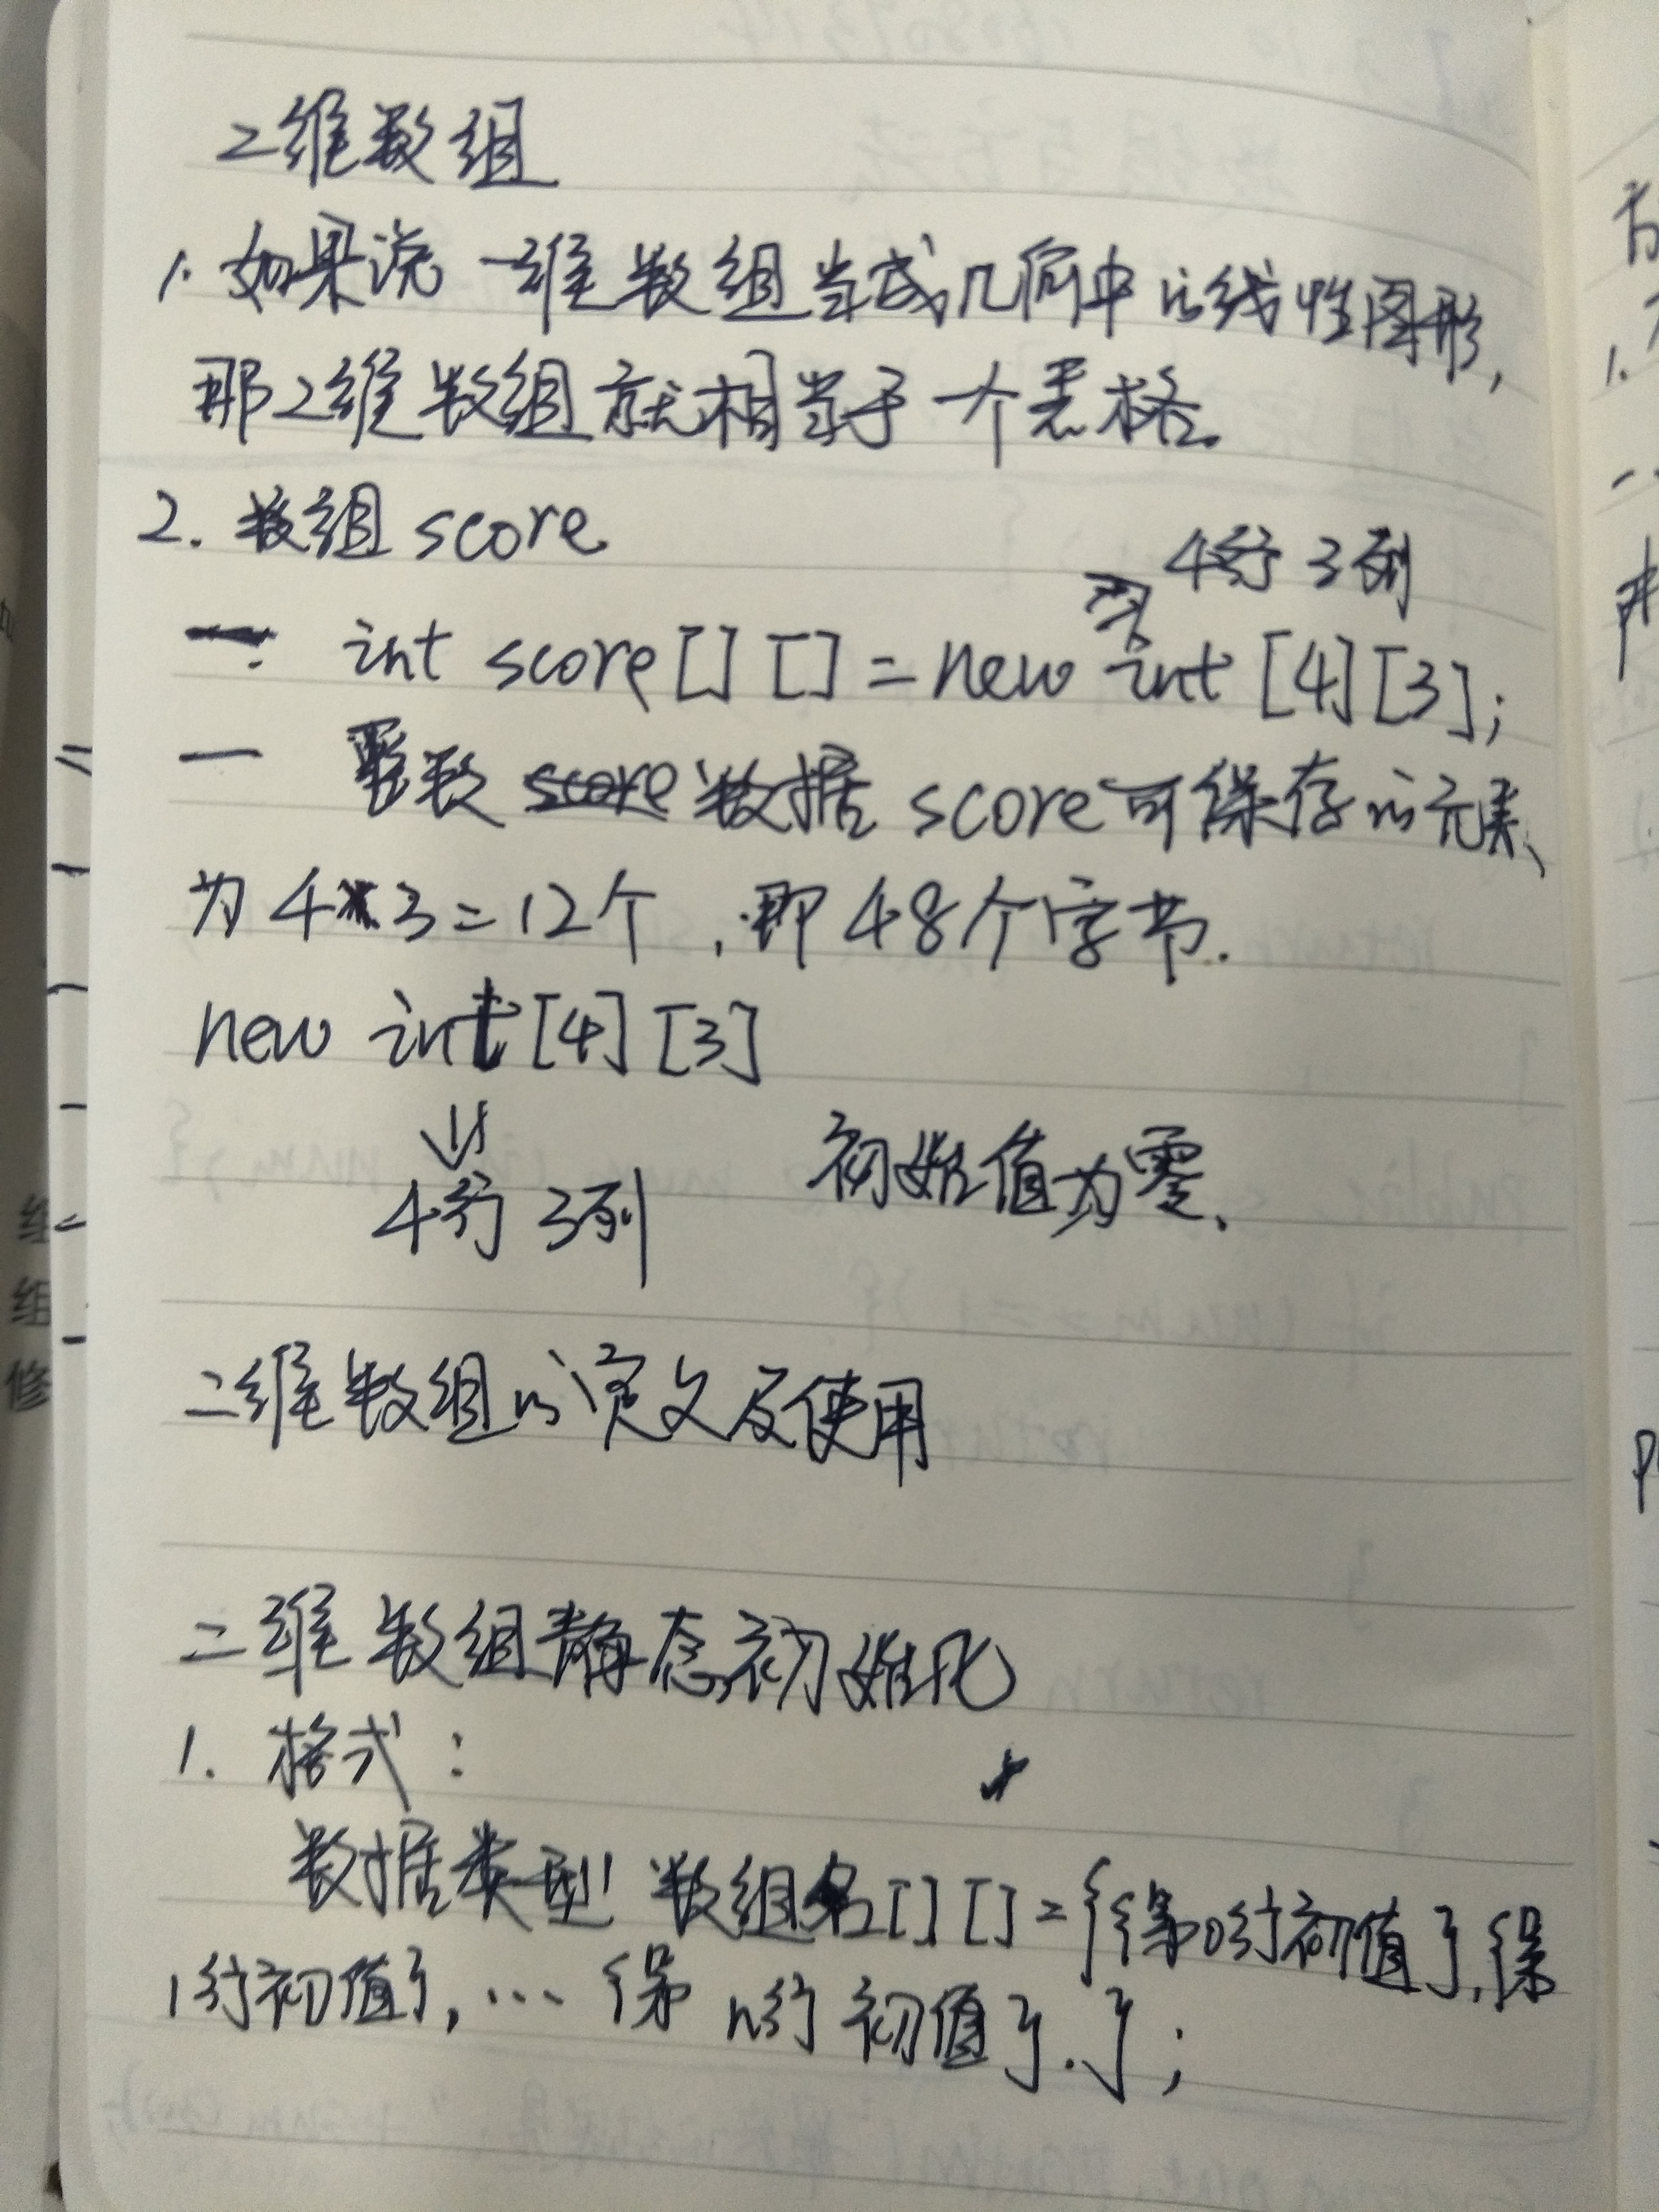 二维数组
1. 如果说一维数组当成几何中的线性图形,
那2维数组就相当于一个表格。
2. 数组 score
4行 3列
一. int score[] [] = new int [4][3];
一 整数 score 数据 score可保存的元素、
为 4*3=12个 , 即 48个字节.
new int [4] [3]
4行 3列 初始值为零、
二维数组的定义及使用
二维数组静态初始化
1. 格式:
数据类型 数组名[] [] = {{第0行初值},{第
1行初值}, … {第 n行 初值}.};